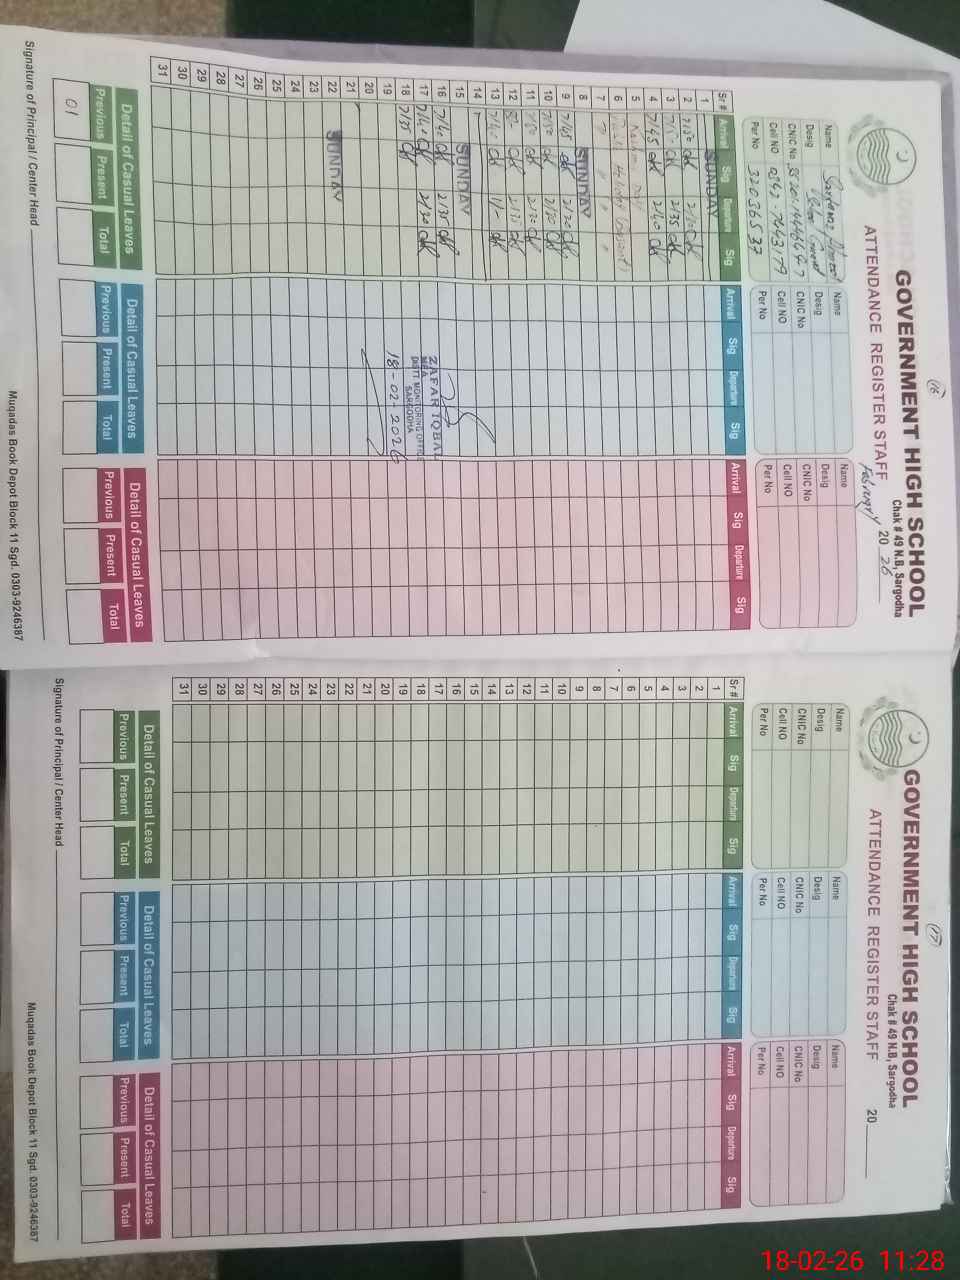 16
GOVERNMENT HIGH SCHOOL
Chak # 49 N.B, Sargodha
ATTENDANCE REGISTER STAFF February 20 26
Name Sarfaraz Ahmed
Desig
CNIC No
Cell NO 0342-7643179
Per No 32036537
Name
Desig
CNIC No
Cell NO
Per No
Name
Desig
CNIC No
Cell NO
Per No
Sr # Arrival Sig Departure Sig Arrival Sig Departure Sig Arrival Sig Departure Sig
1 SUNDAY
2
3 2/35
4 7/45 2/40
5 Kashmir Day
6
7 "
8 SUNDAY
9 7/45 2/30
10 2/30
11 2/30
12
13 7/40
14
15 SUNDAY
16 7/40 2/35
17 7/40 2/30
18 7/35
19
20
21
22 SUNDAY
23
24
25
26
27
28
29
30
31
ZAFAR IQBAL
MEA
DISTT MONITORING OFFICE
SARGODHA
18-02-2026
Detail of Casual Leaves Detail of Casual Leaves Detail of Casual Leaves
Previous Present Total Previous Present Total Previous Present Total
01
Signature of Principal / Center Head
Muqadas Book Depot Block 11 Sgd. 0303-9246387
17
GOVERNMENT HIGH SCHOOL
Chak # 49 N.B, Sargodha
ATTENDANCE REGISTER STAFF 20
Name
Desig
CNIC No
Cell NO
Per No
Name
Desig
CNIC No
Cell NO
Per No
Name
Desig
CNIC No
Cell NO
Per No
Sr # Arrival Sig Departure Sig Arrival Sig Departure Sig Arrival Sig Departure Sig
1
2
3
4
5
6
7
8
9
10
11
12
13
14
15
16
17
18
19
20
21
22
23
24
25
26
27
28
29
30
31
Detail of Casual Leaves Detail of Casual Leaves Detail of Casual Leaves
Previous Present Total Previous Present Total Previous Present Total
Signature of Principal / Center Head
Muqadas Book Depot Block 11 Sgd. 0303-9246387
18-02-26 11:28